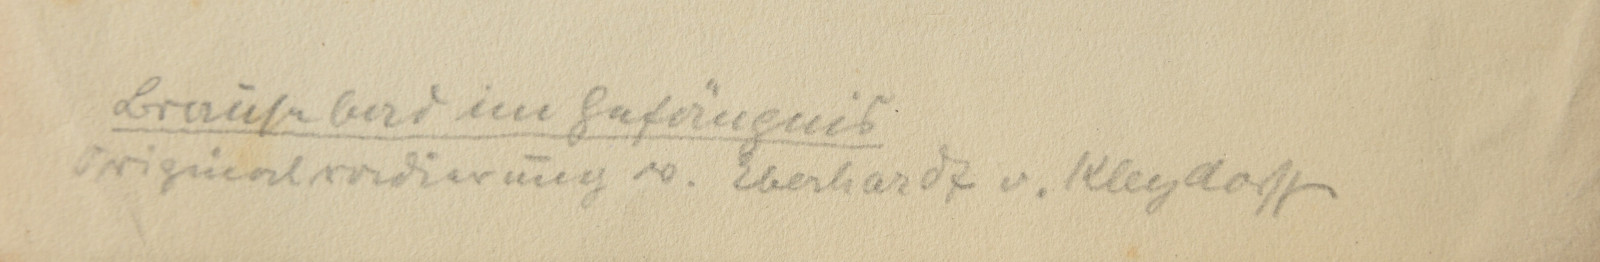 Brausebad im Gefängnis
Originalradierung v. Eberhardt v. Kleydorff